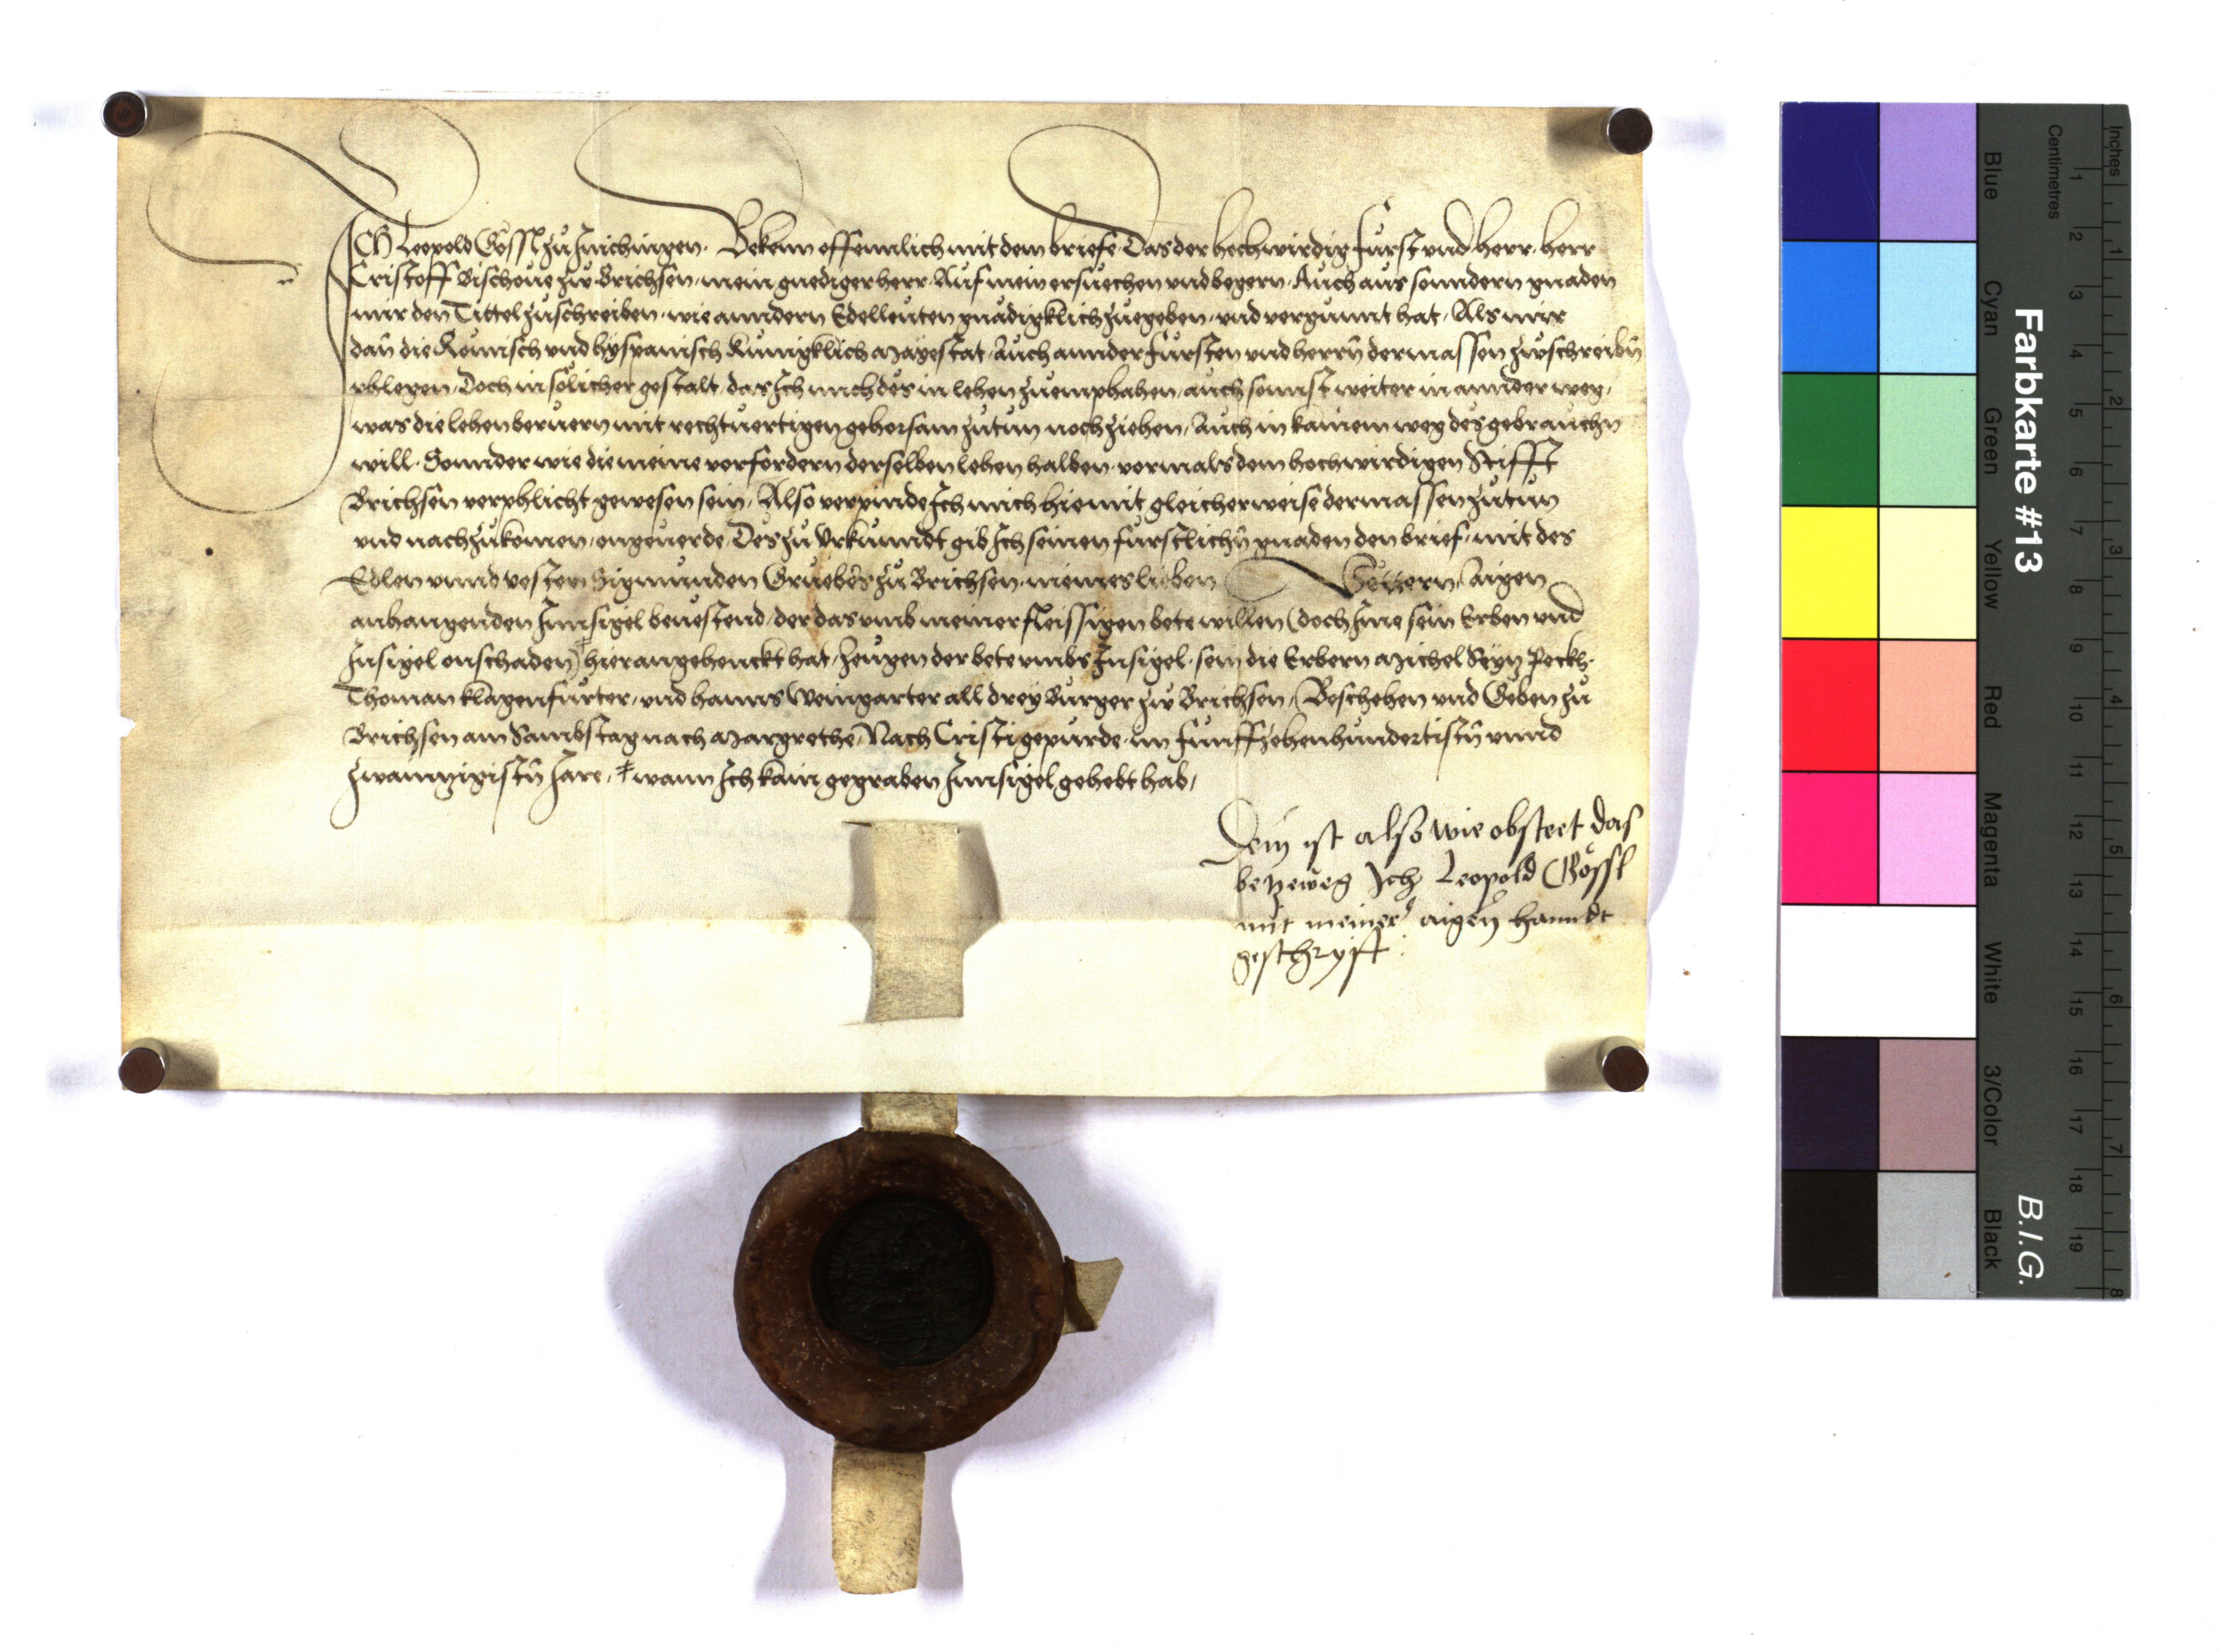 ICH Leopold Gössl zu Inichingen. Bekenn offennlich mit dem briefe. Das der hochwirdig fürst vnd herr. herr
Cristoff Bischoue zw Brichsen. mein gnediger herr. Auf mein ersuechen vnd begern. Auch aus sonndern gnaden
mir den Tittel zuschreiben. wie anndern Edelleuten gnädigklich zuegeben. vnd vergunnt hat. Als mir
dan̄ die Römisch vnd hyspanisch kunigklich Mayestat. Auch annder fürsten vnd herrn̄ dermassen zwschreibn̄
phlegen. Doch in sölicher gestalt. das Ich mich des in lehen zuemphahen. auch sonnst weiter in annder weg.
was die lehen beruern mit rechtuertigen gehorsam zutun noch ziehen. Auch in kainem weg des gebrauchn
will. Sonnder wie die meine vorfordern derselben lehen halben. vormals dem hochwirdigen Stifft
Brichsen verphlicht gewesen sein. Also verpinde Ich mich hiemit gleicherweise dermassen zutun
vnd nachzukomen. ongeuerde. Des zu Vrkunndt gib Ich seinen fürstlichn̄ gnaden den brief. mit des
Edlen vnnd vesten Sigmunden Gruebers zu Brichsen. meines lieben Vettern. aigen
anhangenden Innsigel beuestend. der das vmb meiner fleissigen bete willen (doch Ime sein Erben vnd
Insigel onschaden) ‡ hieran gehenckt hat. Zeugen der bete vmbs Insigel. sein die Erbern Michel Peckh.
Thoman klagenfurter. vnd hanns Weingarter all drey Burger zw Brichsen. Beschehen vnd Geben zu
Brichsen am Sambstag nach Margrethe. Nach Cristi gepurde. im funffzehenhundertistn̄ vnnd
zwannzigistn̄ Jare. ‡ wann Ich kain gegraben Innsigel gehebt hab.
Dem ist also wie obsteet das
betzeweg Ich Leopold Gössl
mit meiner aigen̄ hanndt
geschryft.
Farbkarte #13
B.I.G.
Inches
Centimetres
1 2 3 4 5 6 7 8
1 2 3 4 5 6 7 8 9 10 11 12 13 14 15 16 17 18 19
Blue
Cyan
Green
Yellow
Red
Magenta
White
3/Color
Black